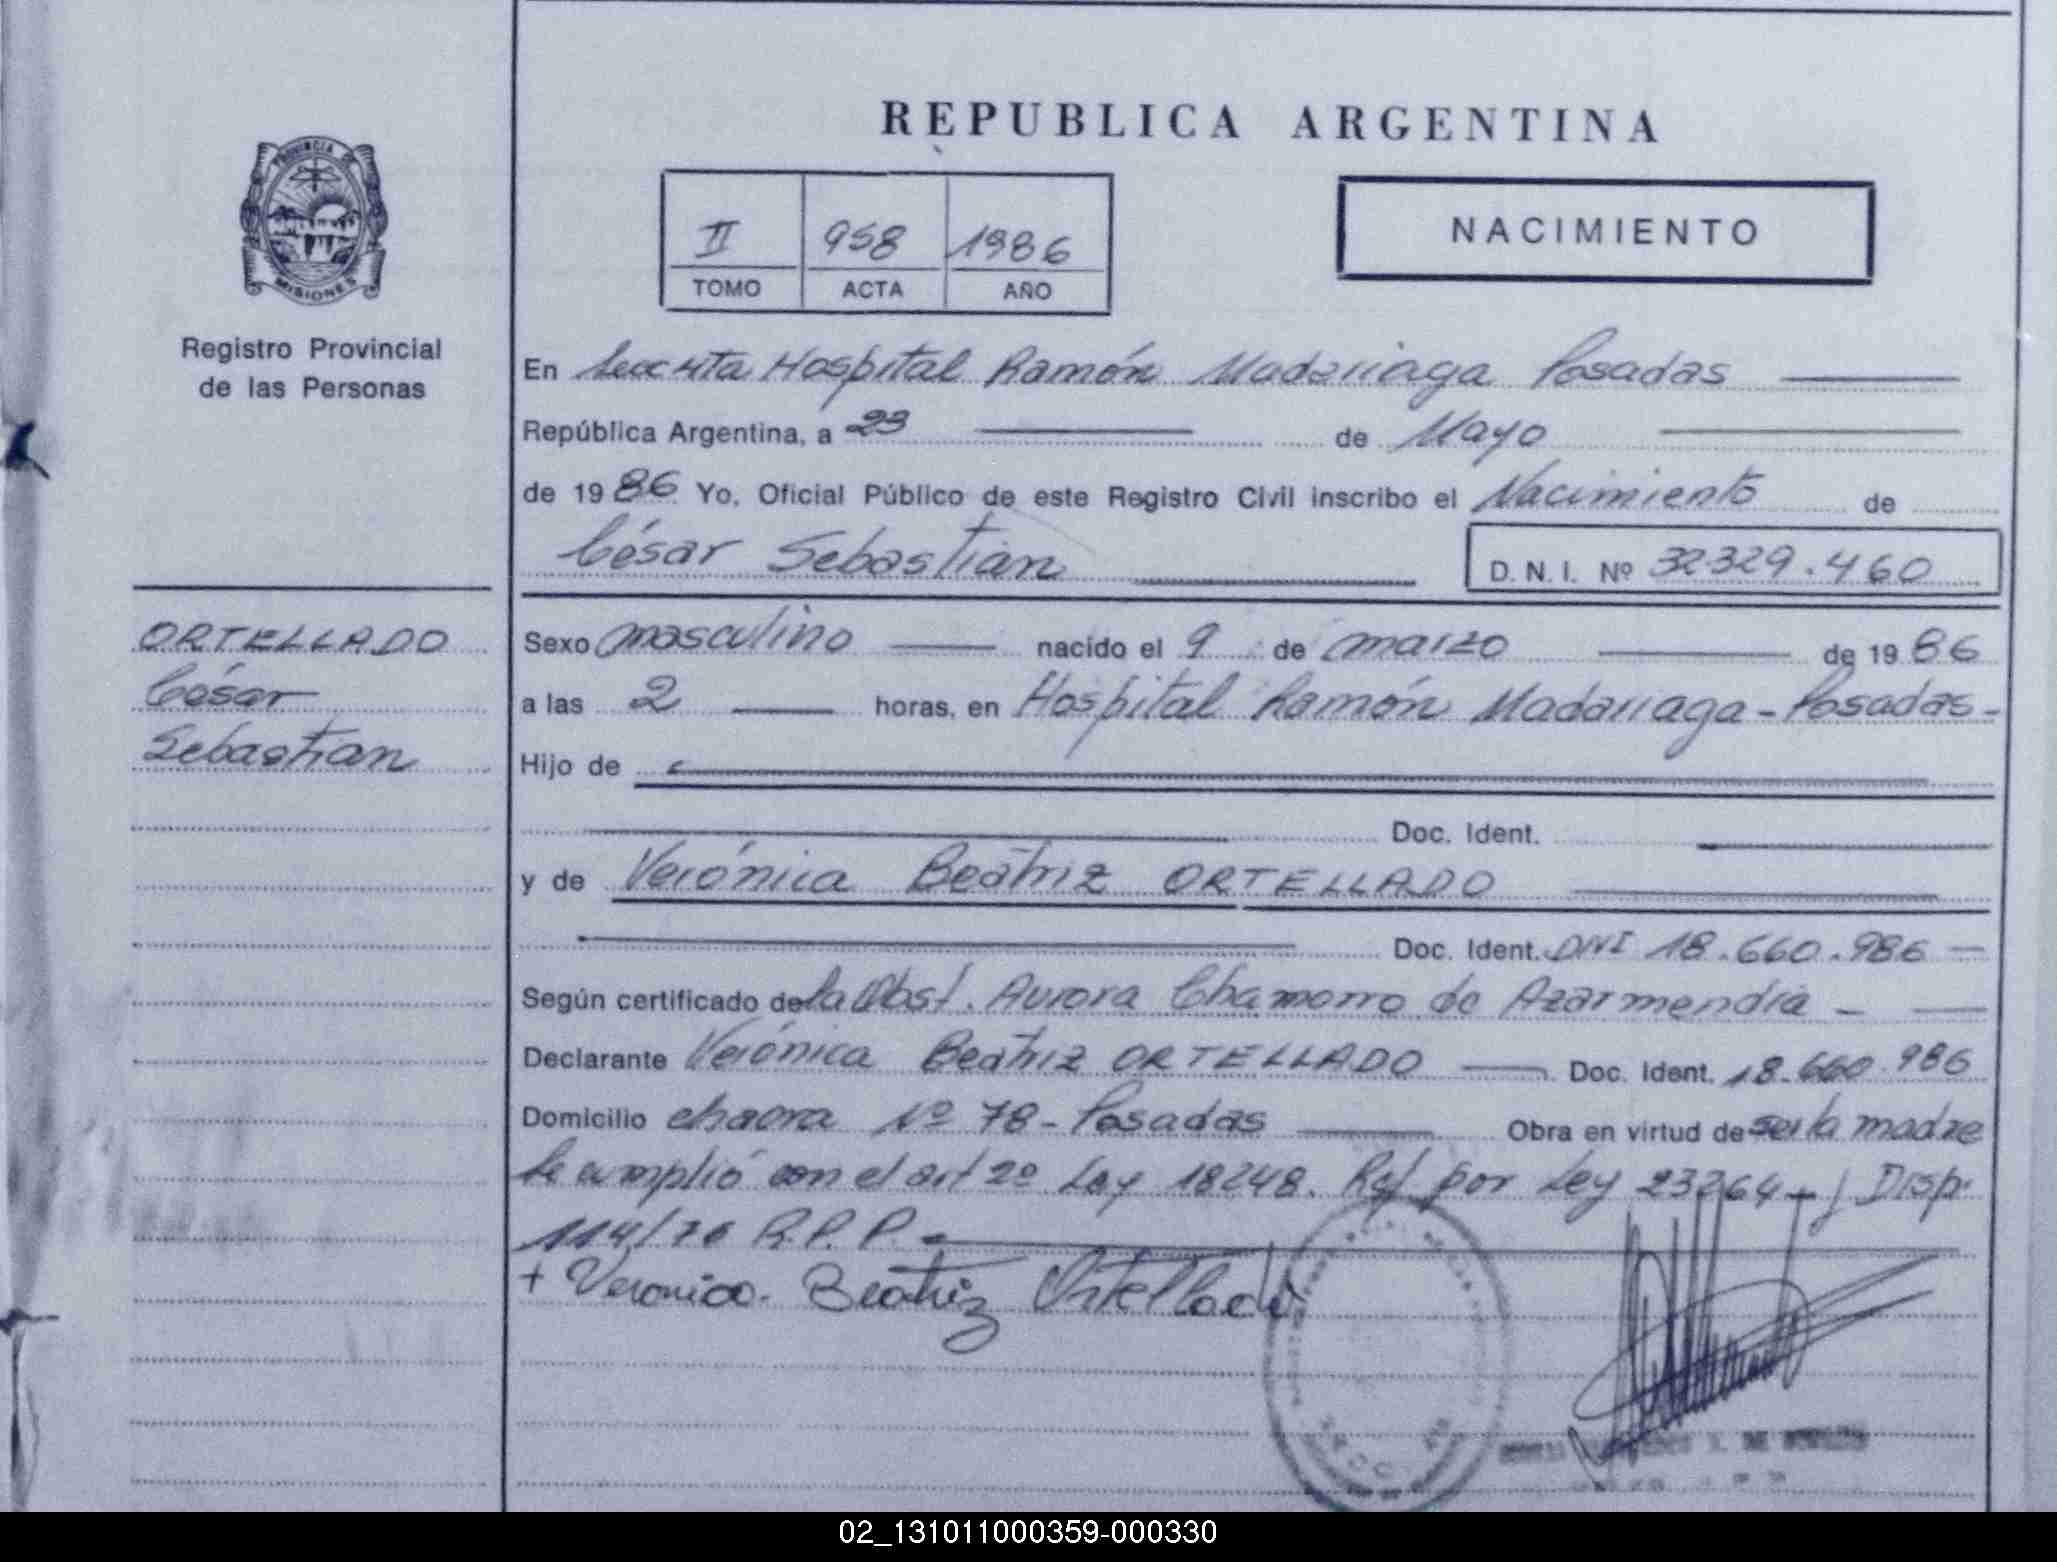 PROVINCIA DE
MISIONES
Registro Provincial
de las Personas
ORTELLADO
César
Sebastian
REPUBLICA ARGENTINA
II 958 1986
TOMO ACTA AÑO
NACIMIENTO
En Hospital Ramón Madariaga Posadas
República Argentina, a 23 de Mayo
de 1986 Yo, Oficial Público de este Registro Civil inscribo el Nacimiento de
César Sebastian D.N.I. Nº 32329.460
Sexo masculino nacido el 9 de marzo de 1986
a las 2 horas, en Hospital Ramón Madariaga - Posadas -
Hijo de
Doc. Ident.
y de Verónica Beatriz ORTELLADO
Doc. Ident. DNI 18.660.986
Según certificado de la Obst. Aurora Chamorro de Azarmendia -
Declarante Verónica Beatriz ORTELLADO Doc. Ident. 18.660.986
Domicilio chacra Nº 78 - Posadas Obra en virtud de ser la madre
Se cumplió con el art 2º Ley 18248. Ref por Ley 23264 - y Disp.
114/76 R.P.P. -
+ Veronica. Beatriz Ortellado
02_131011000359-000330